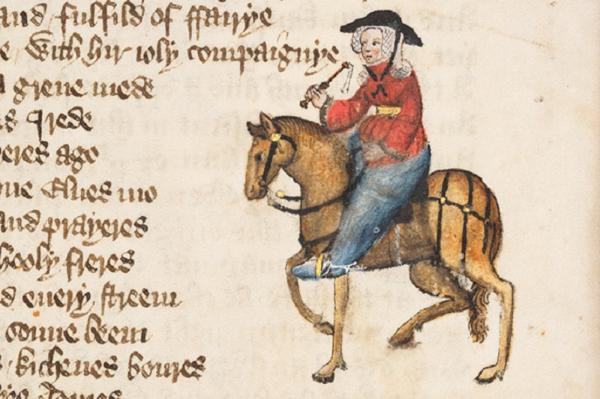 and fulfild of ffairye
e With hir ioly compaignye
a grene mede
s I rede
yeres ago
ne Elues mo
and prayeres
hooly freres
d euery streem
sonne beem
s kichenes boures